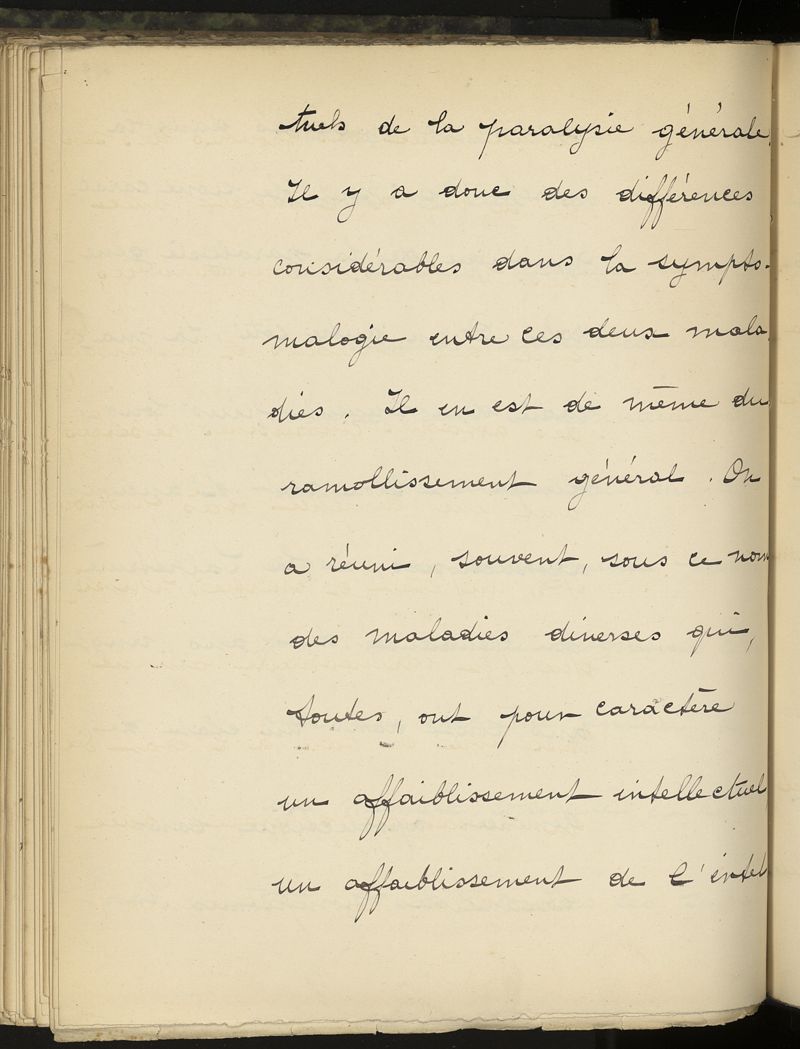 tuels de la paralysie générale.
Il y a donc des différences
considérables dans la sympto-
malogie entre ces deux mala
dies. Il en est de même du
ramollissement général. On
a réuni, souvent, sous ce nom
des maladies diverses qui,
toutes, ont pour caractère
un affaiblissement intellectuel
un affaiblissement de l'intel